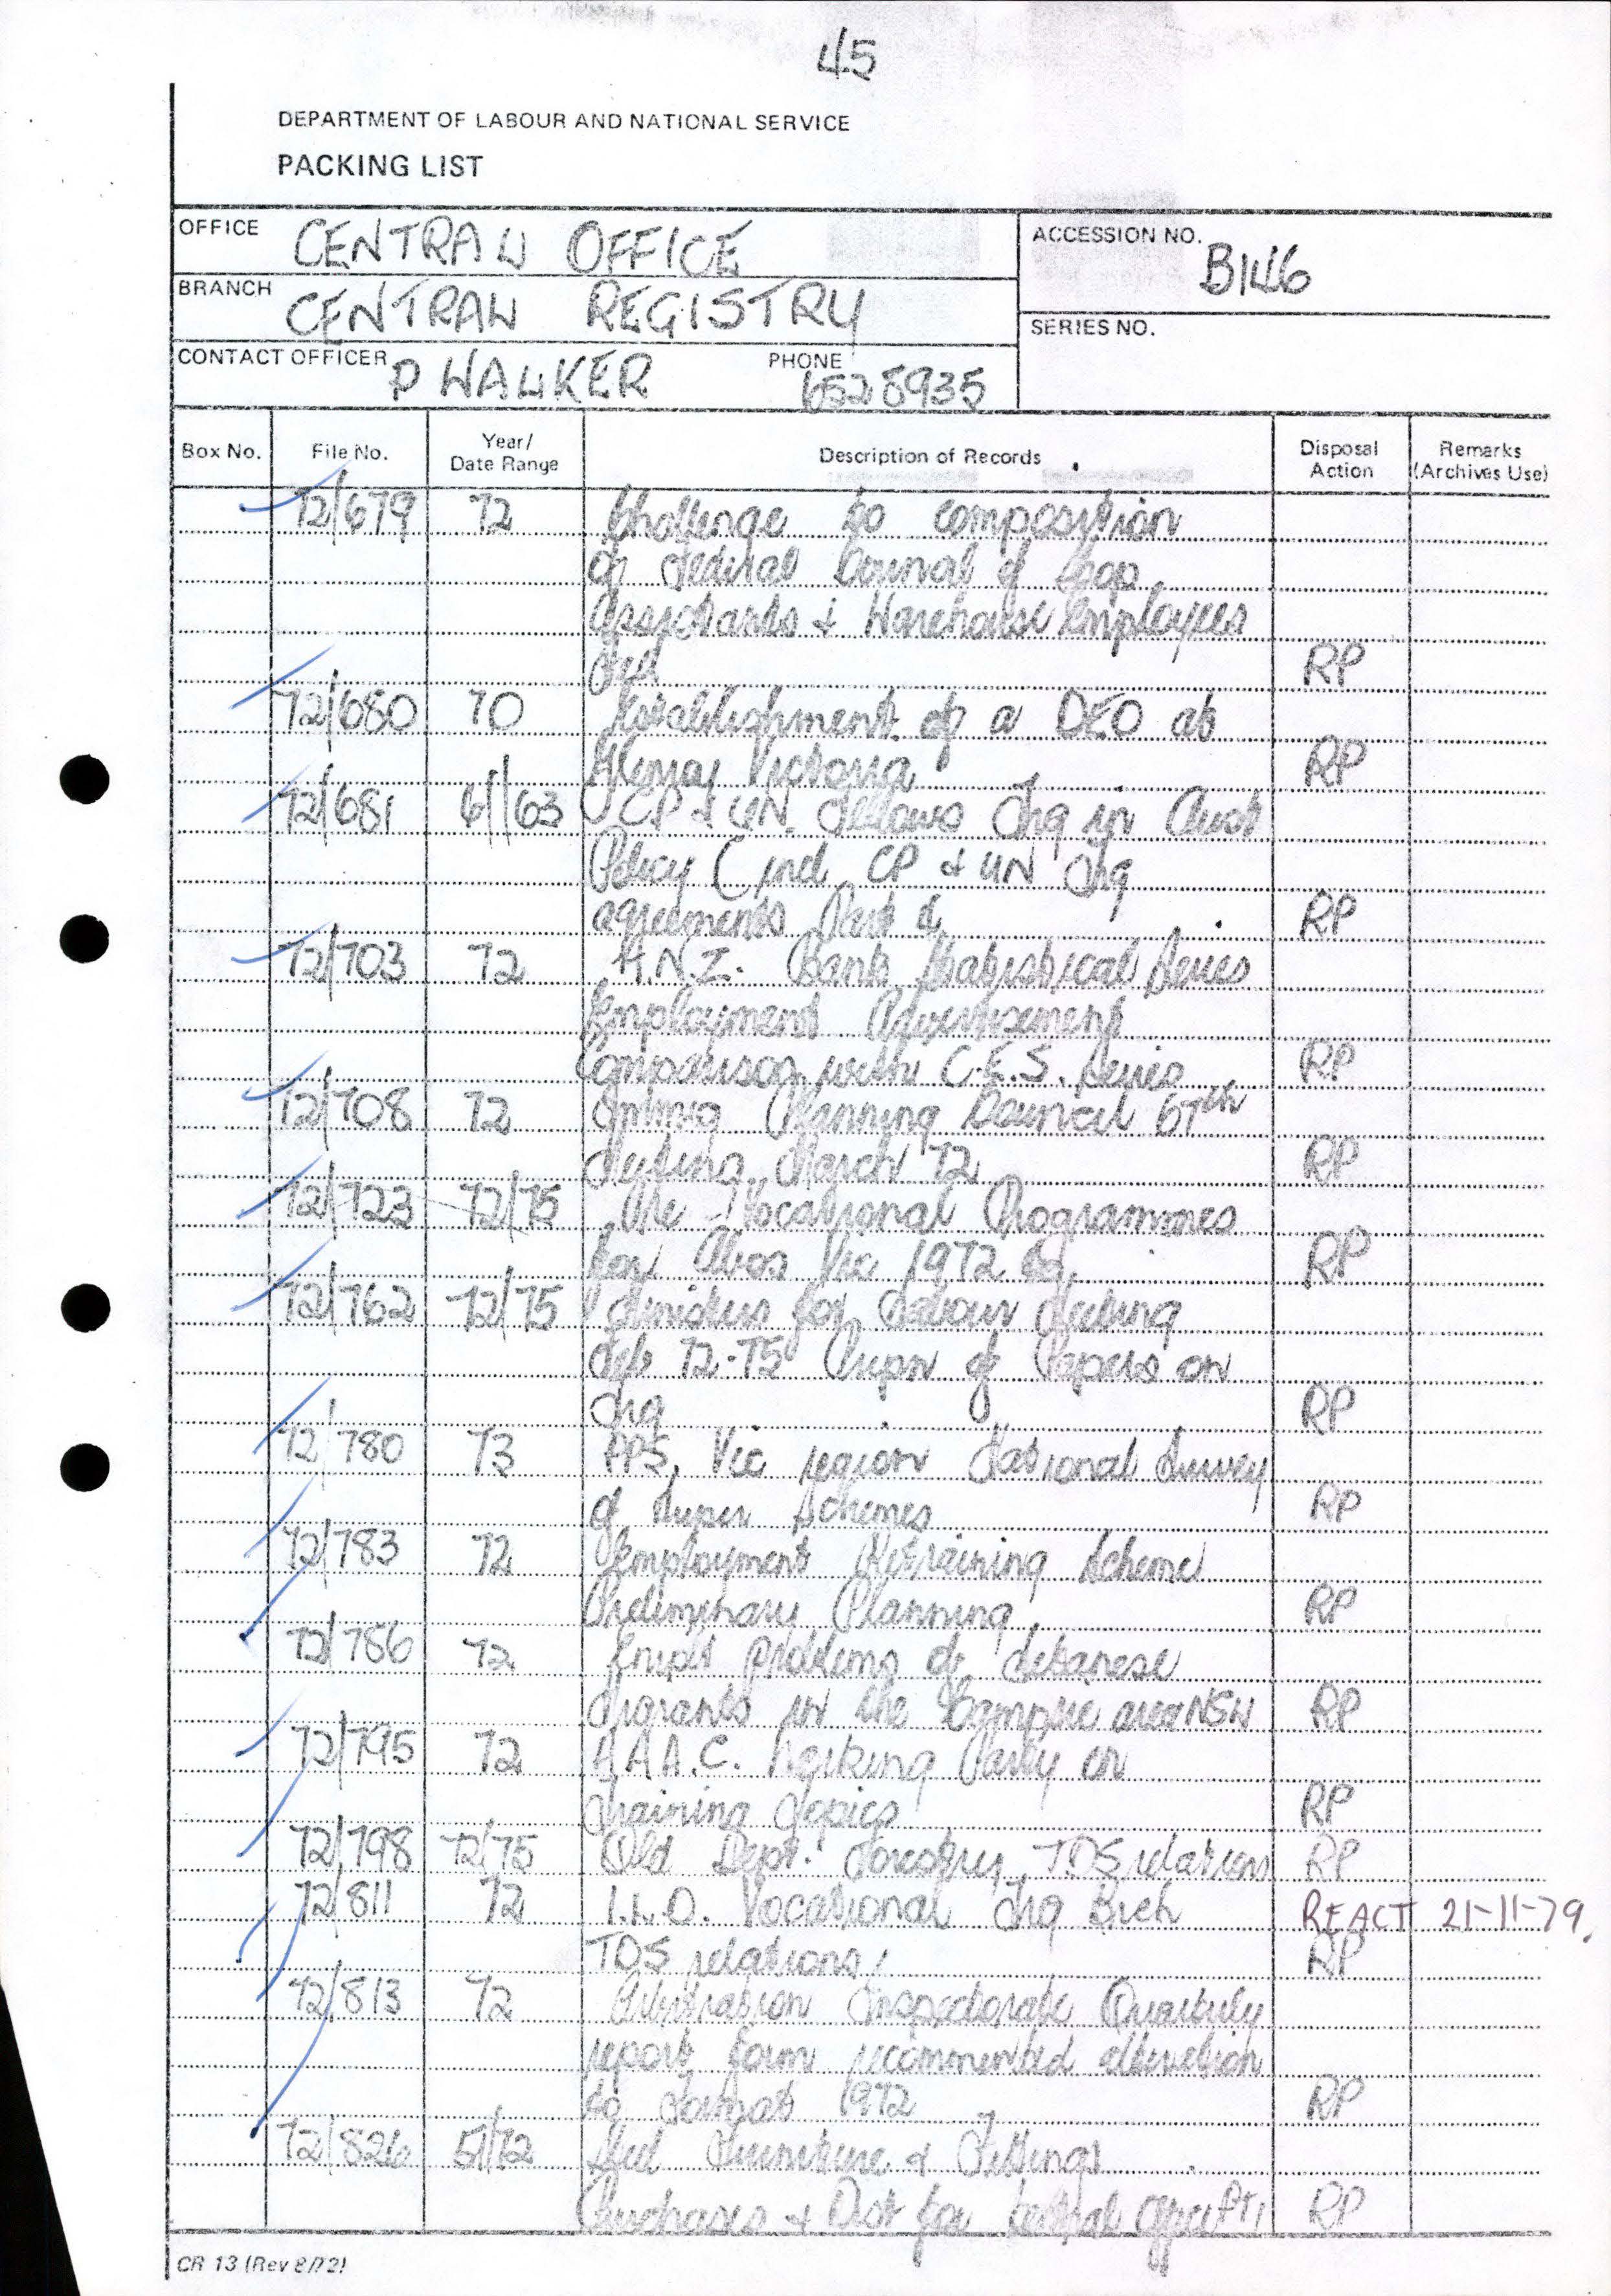 45
DEPARTMENT OF LABOUR AND NATIONAL SERVICE
PACKING LIST
OFFICE CENTRAL OFFICE
ACCESSION NO. B146
BRANCH CENTRAL REGISTRY
SERIES NO.
CONTACT OFFICER P WALKER PHONE 6528935
Box No. File No. Year/ Date Range Description of Records Disposal Action Remarks (Archives Use)
72/679 72 Challenge to composition
of Federal Council of Shop
Assistants & Warehouse Employees
Fed RP
72/680 70 Establishment of a DEO at
Victoria RP
72/681 61/63 CP & UN. Fellows Trg in Aust
Policy (incl CP & UN Trg
agreements Part 2 RP
72/703 72 A.N.Z. Bank Statistical Series
Employment Advertisement
Comparison with C.E.S. Series RP
72/708 72 Immig Planning Council 67th
Meeting March 72 RP
72/723 72/75 Pre-Vocational Programmes
for Abos Vic 1972 RP
72/762 72/75 Ministers for Labour Meeting
Feb 72-75 Prepn of Papers on
Trg RP
72/780 73 PPS, Vic region National Survey
of Super Schemes RP
72/783 72 Employment Retraining Scheme
Preliminary Planning RP
72/786 72 Emplt problems of Lebanese
Migrants in the Campsie area NSW RP
72/795 72 A.A.A.C. Working Party on
Training Topics RP
72/798 72/75 Qld Dept. Forestry TDS relations RP
72/811 72 I.L.O. Vocational Trg Brch REACT 21-11-79.
TDS relations RP
72/813 72 Arbitration Inspectorate Quarterly
report form recommended alteration
to format 1972 RP
72/826 51/72 Steel Furniture & Fittings
Purchases & Dist for Central Office Pt1 RP
CR 13 (Rev 8/72)